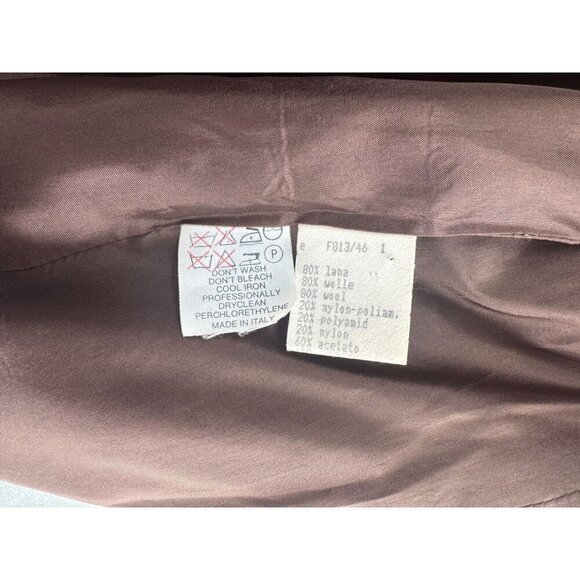 DON'T WASH
DON'T BLEACH
COOL IRON
PROFESSIONALLY
DRYCLEAN
PERCHLORETHYLENE
MADE IN ITALY
P
e F813/46 1
80% lana
80% wolle
80% wool
20% nylon-poliam.
20% polyamid
20% nylon
60% acetato